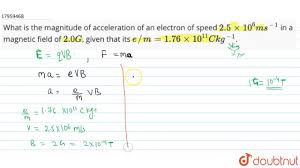 17959468
What is the magnitude of acceleration of an electron of speed 2.5 × 10⁶ms⁻¹ in a
magnetic field of 2.0G, given that its e/m = 1.76 × 10¹¹Ckg⁻¹.
F = qVB , F = ma
ma = eVB
a = e/m VB
1G = 10⁻⁴T
e/m = 1.76 × 10¹¹ C kg⁻¹
V = 2.5×10⁶ m/s
B = 2G = 2×10⁻⁴T
doubtnut